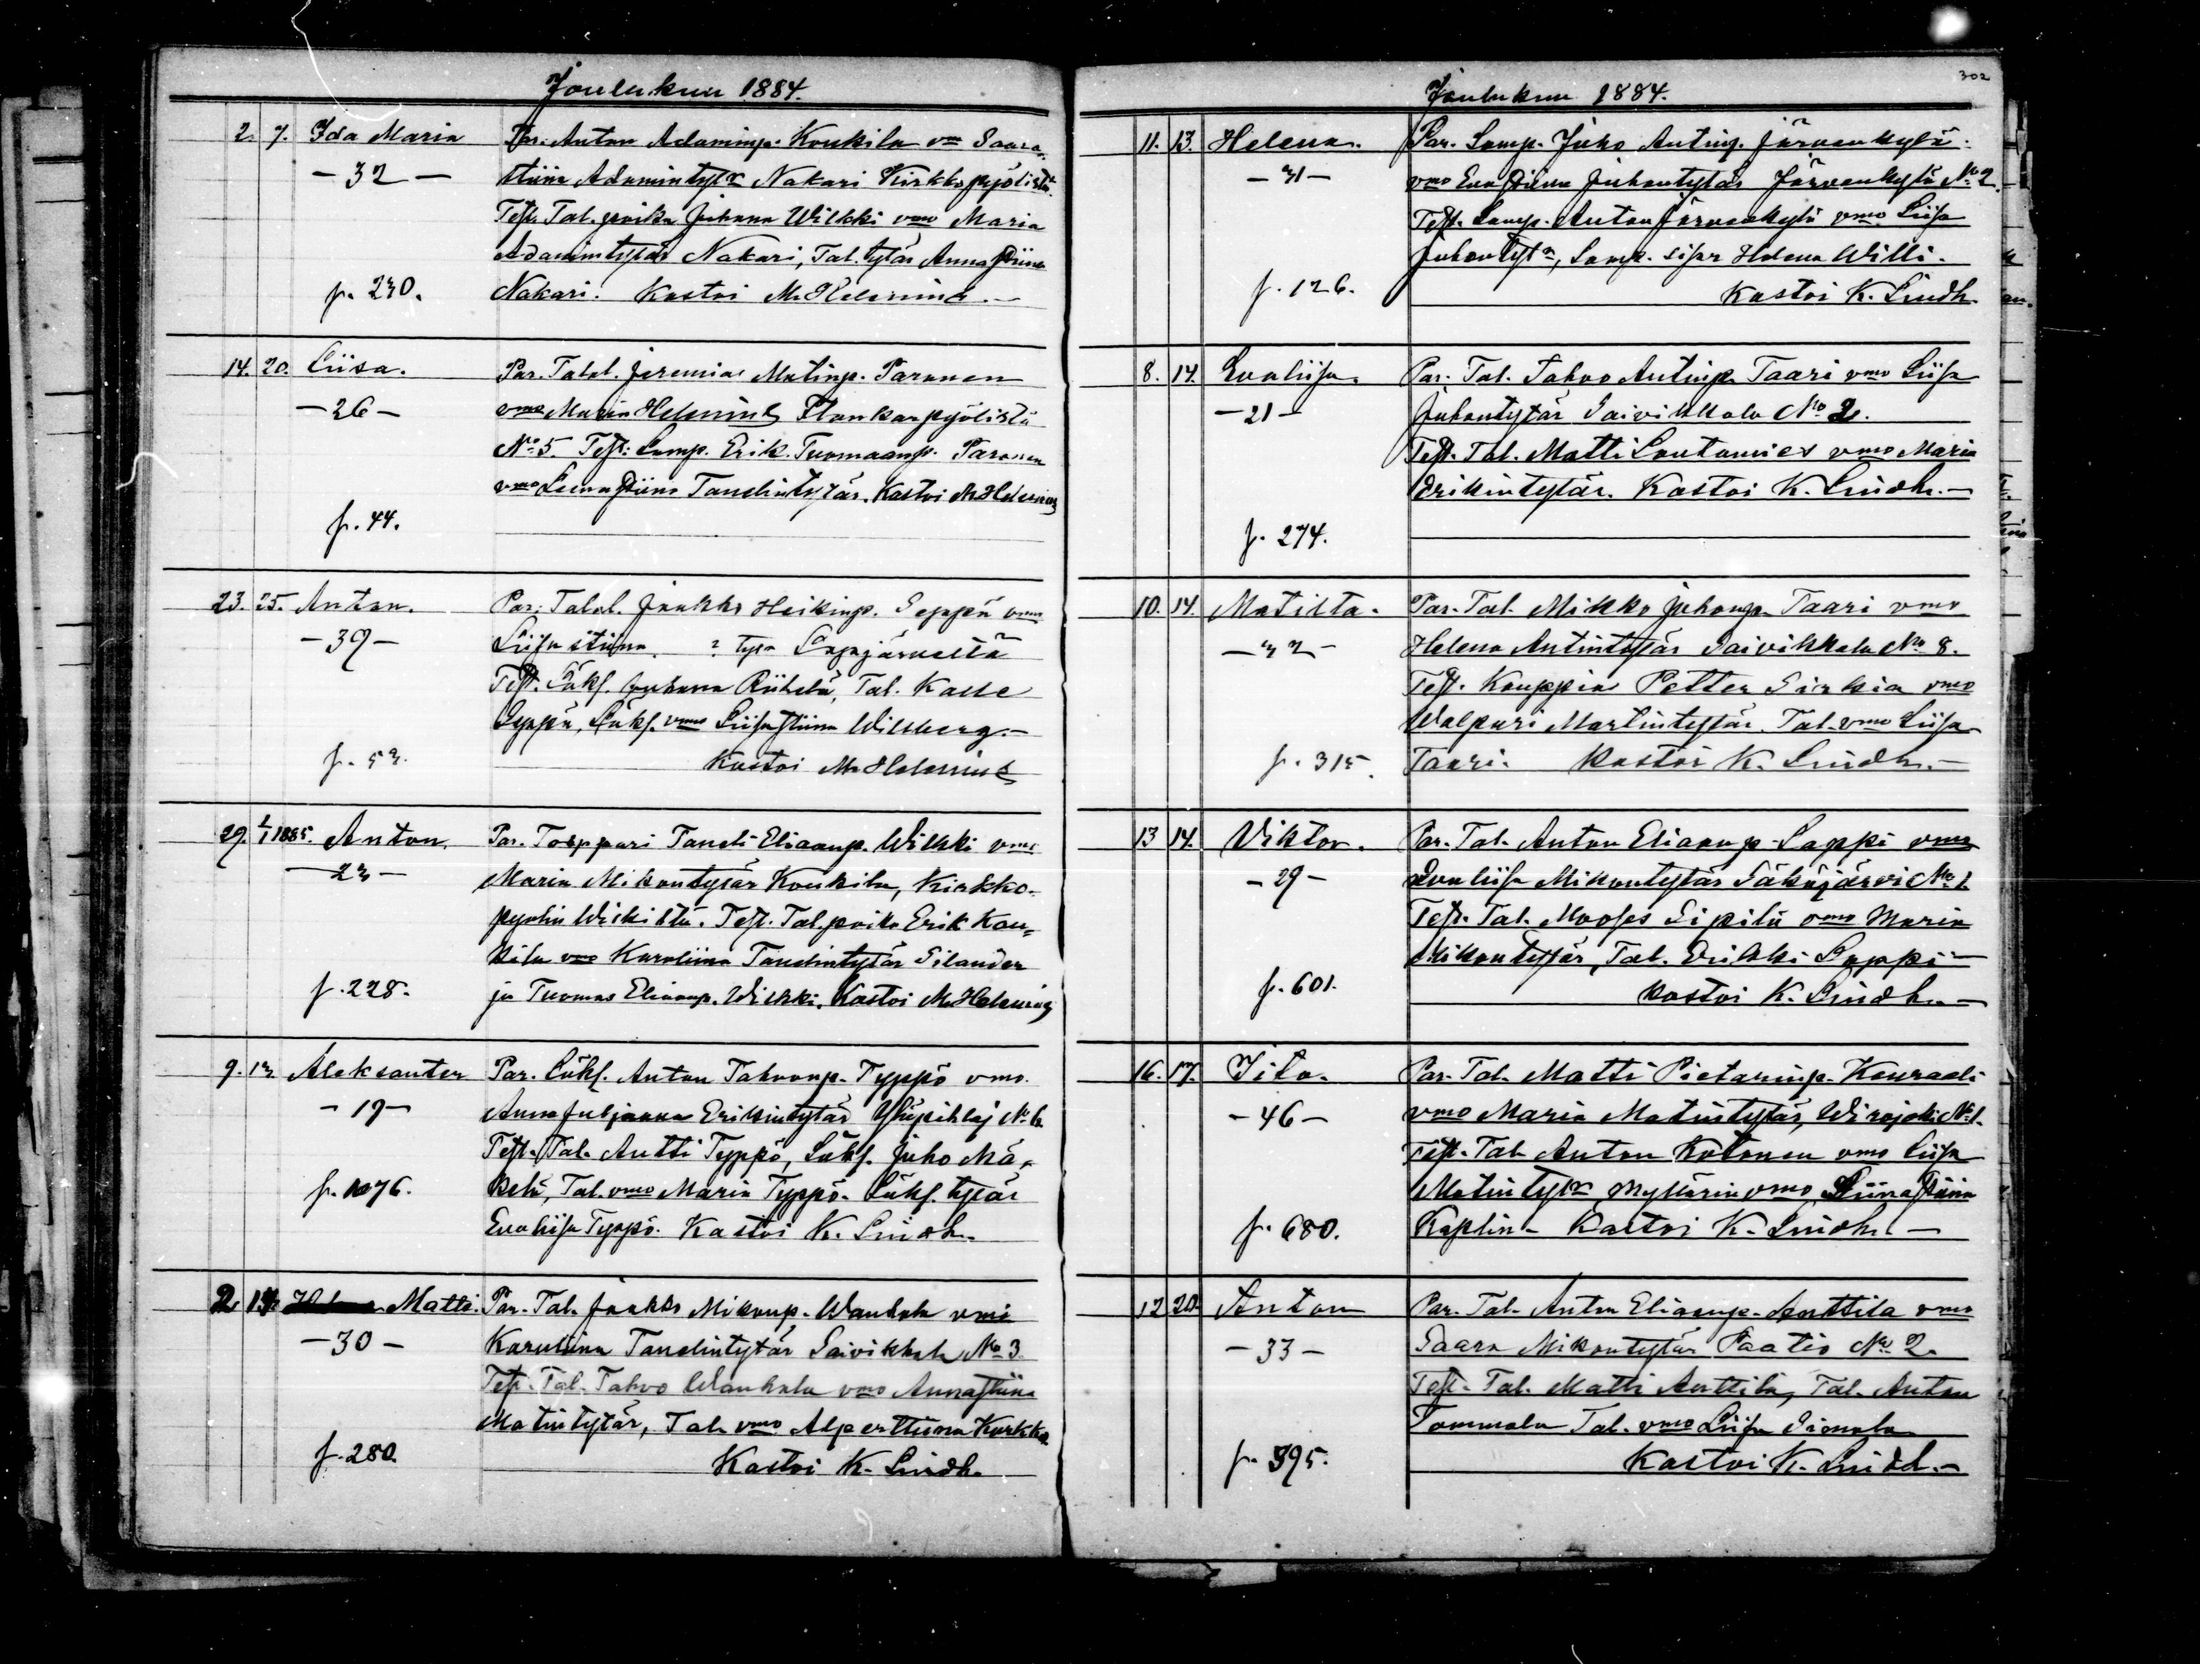 Joulukuu 1884.
2. 7. Ida Maria Par. Anton Adaminp. Koukila vmo Saara
-32- stiina Adamintytr Nakari Kirkkopyölistä.
Test. Tal. poika Juhana Wilkki vmo Maria
Adamintytär Nakari, Tal. tytär Annastiina
p. 230. Nakari. Kastoi M. Helenius.
14. 20. Liisa. Par. Talol. Jeremias Matinp. Paranen
-26- vmo Maria Helenius Plankarpyölistä
No 5. Test: Lamp. Erik Tuomaanp. Paranen
vmo Leenastiina Tanelintytär. Kastoi M. Helenius
p. 44.
23. 25. Anton. Par. Talol. Jaakko Heikinp. Seppä vmo
-39- Liisa stiina ? tytr Lapajärveltä
Test. Läks. Juhana Riihelä, Tal. Kalle
Seppä, Läks. vmo Liisastiina Willberg.-
p. 53. Kastoi M. Helenius
29. 1/1 1885. Anton. Par. Torppari Taneli Eliaanp. Wilkki vmo
-23- Maria Mikontytär Koukila, Kirkko-
pyölin Wilkistä. Test. Tal. poika Erik Kou-
kila vmo Karoliina Tanelintytär Silander
p. 228. ja Tuomas Eliaanp. Wilkki. Kastoi M. Helenius
9. 13. Aleksanter Par. Läks. Anton Tahvonp. Typpö vmo.
-19- Anna Juljaana Erikintytär Yhipihlaj No 6.
Test. Tal. Antti Typpö, Läks. Juho Mä-
p. 1076. kelä, Tal. vmo Maria Typpö. Läks. tytär
Evaliisa Typpö. Kastoi K. Lindh.
2. 14. Matti. Par. Tal. Jaakko Mikonp. Wanhala vmo
-30- Karoliina Tanelintytär Saivikkala No 3.
Test. Tal. Tahvo Wanhala vmo Annastiina
Matintytär, Tal. vmo Alperttiina Kurkko.
p. 280. Kastoi K. Lindh.
302
Joulukuu 1884.
11. 13. Helena. Par. Lamp. Juho Antinp. Järvenkylä
-31- vmo Evastiina Juhontytär Järvenkylä No 2.
Test. Lamp. Anton Järvenkylä vmo Liisa
Juhontytr, Lamp. sisar Helena Willi.
p. 126. Kastoi K. Lindh.
8. 14. Evaliisa. Par. Tal. Tahvo Antinp. Taari vmo Liisa
-21- Juhontytär Saivikkala No 2.
Test. Tal. Matti Loutamies vmo Maria
Erikintytär. Kastoi K. Lindh.-
p. 274.
10. 14. Matilta. Par. Tal. Mikko Juhonp. Taari vmo
-32- Helena Antintytär Saivikkala No 8.
Test. Kauppias Petter Sirkia vmo
Walpuri Martintytär. Tal. vmo Liisa
p. 315. Taari. Kastoi K. Lindh.-
13 14. Viktor. Par. Tal. Anton Eliaanp. Lappi vmo
-29- Evaliisa Mikontytär Säkäjärvi No 1.
Test. Tal. Mooses Sipilä vmo Maria
Mikontytär, Tal. Erikki Lappi
p. 601. Kastoi K. Lindh.-
16. 17. Iita. Par. Tal. Matti Pietarinp. Konraadi
-46- vmo Maria Matintytär, Wirojoki No 1.
Test. Tal. Anton Kotonen vmo Liisa
Matintytr Myllärin vmo Stiinastiina
p. 680. Kaplin- Kastoi K. Lindh.-
12 20. Anton Par. Tal. Anton Eliaanp. Anttila vmo
-33- Saara Mikontytär Paatio No 2.
Test. Tal. Matti Anttila, Tal. Anton
Tommola Tal. vmo Liisa Simola
p. 395. Kastoi K. Lindh.-